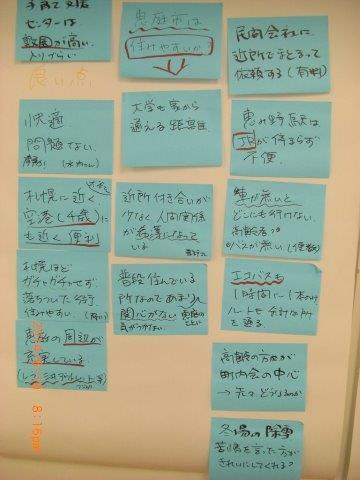 子育て支援
センターは
敷居が高い
入りづらい
良い点
快適
問題ない
札幌に近く、
空港(千歳)に
も近く 便利
札幌ほど
ガチャガチャせず
落ちついた街
住みやすい。
恵庭の周辺が
充実している
恵庭市は
住みやすいか?
大学も家から
通える距離
近所付き合いが
少なく 人間関係
が希薄になって
いる
普段住んでいる
所なのであまり
関心がない
気がつかない
民間会社に
近所でまとまって
依頼する(有料)
恵み野駅は
JRが停まらず
不便。
車が無いと
どこにも行けない。
高齢者
バスが無い(便数)
エコバスも
1時間に1本
ルートも
を通る
高齢の方たちが
町内会の中心
→先々どうなるのか
冬場の除雪
苦情を言った方が
きれいにしてくれる?
8:16pm